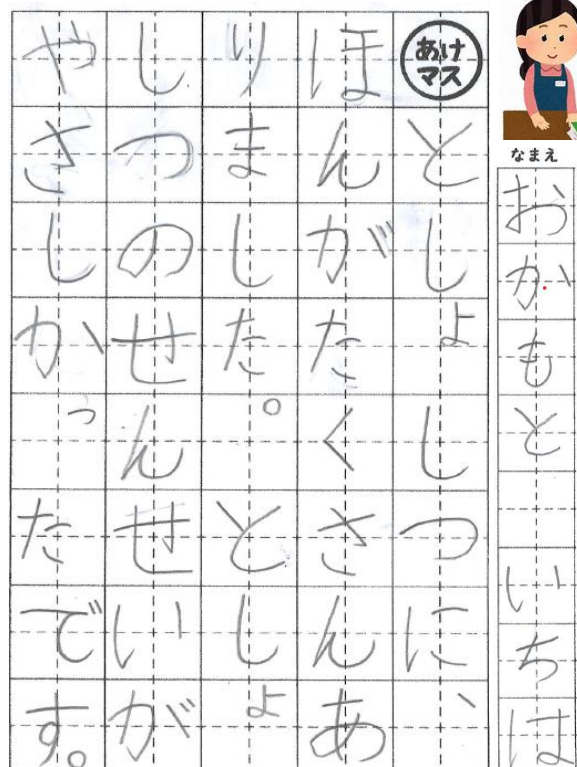 なまえ
おかもと いちは
あけマス
としょしつに、
ほんがたくさんあ
りました。としょ
しつのせんせいが
やさしかったです。